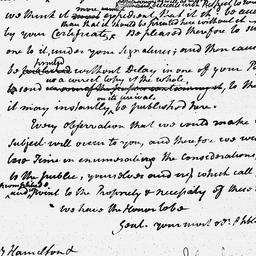 we think it more expedient that it
than that it should be printed here without it
by your Certificate. Be pleased therefore to
one to it, under your Signatures; and then cause
printed
be without Delay, in one of your
a correct Copy of the whole,
to send
on its arrival,
it may instantly be published here.
Every observation that we could make
subject will occur to you, and therefore we
lose Time in enumerating the Considerations,
to the public, yourselves and us, which call
and point to the Propriety & necessity of these
we have the Honor to be
Gent. your most ob.
Hamilton